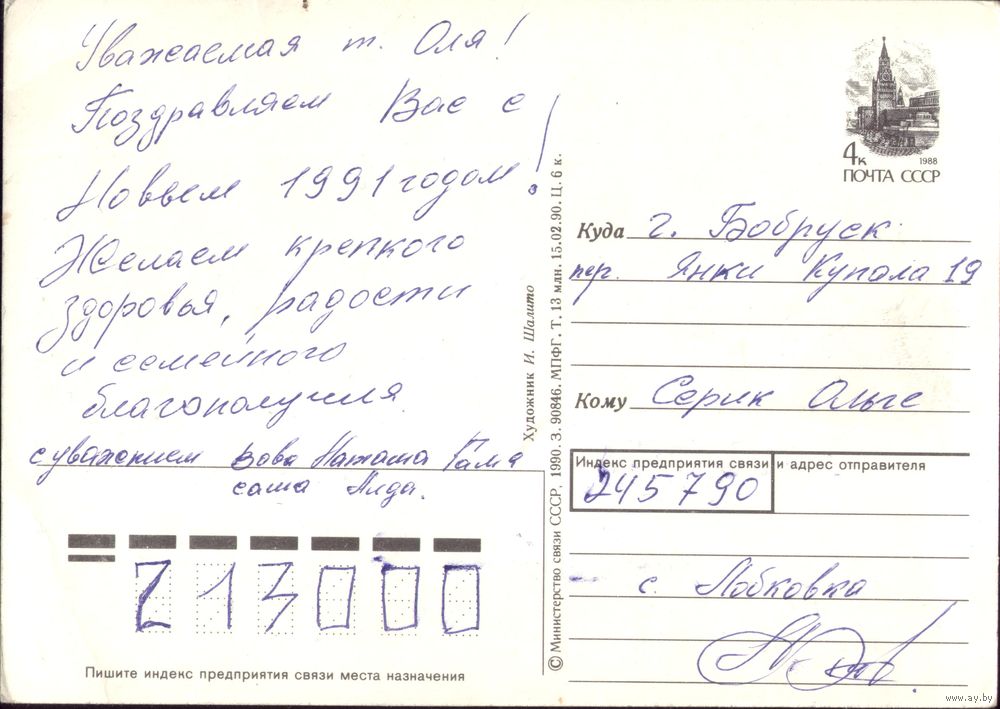 Уважаемая т. Оля!
Поздравляем Вас с
Новым 1991 годом!
Желаем крепкого
здоровья, радости
и семейного
благополучия
с уважением Вова Наташа
саша
213000
Пишите индекс предприятия связи места назначения
Художник И. Шалито
© Министерство связи СССР, 1990. З. 90846. МПФГ. Т. 13 млн. 15.02.90. Ц. 6 к.
4к 1988
ПОЧТА СССР
Куда г. Бобруск
пер. Янки Купала 19
Кому Серик Ольге
Индекс предприятия связи и адрес отправителя
245790
с. Лобковка
www.ay.by